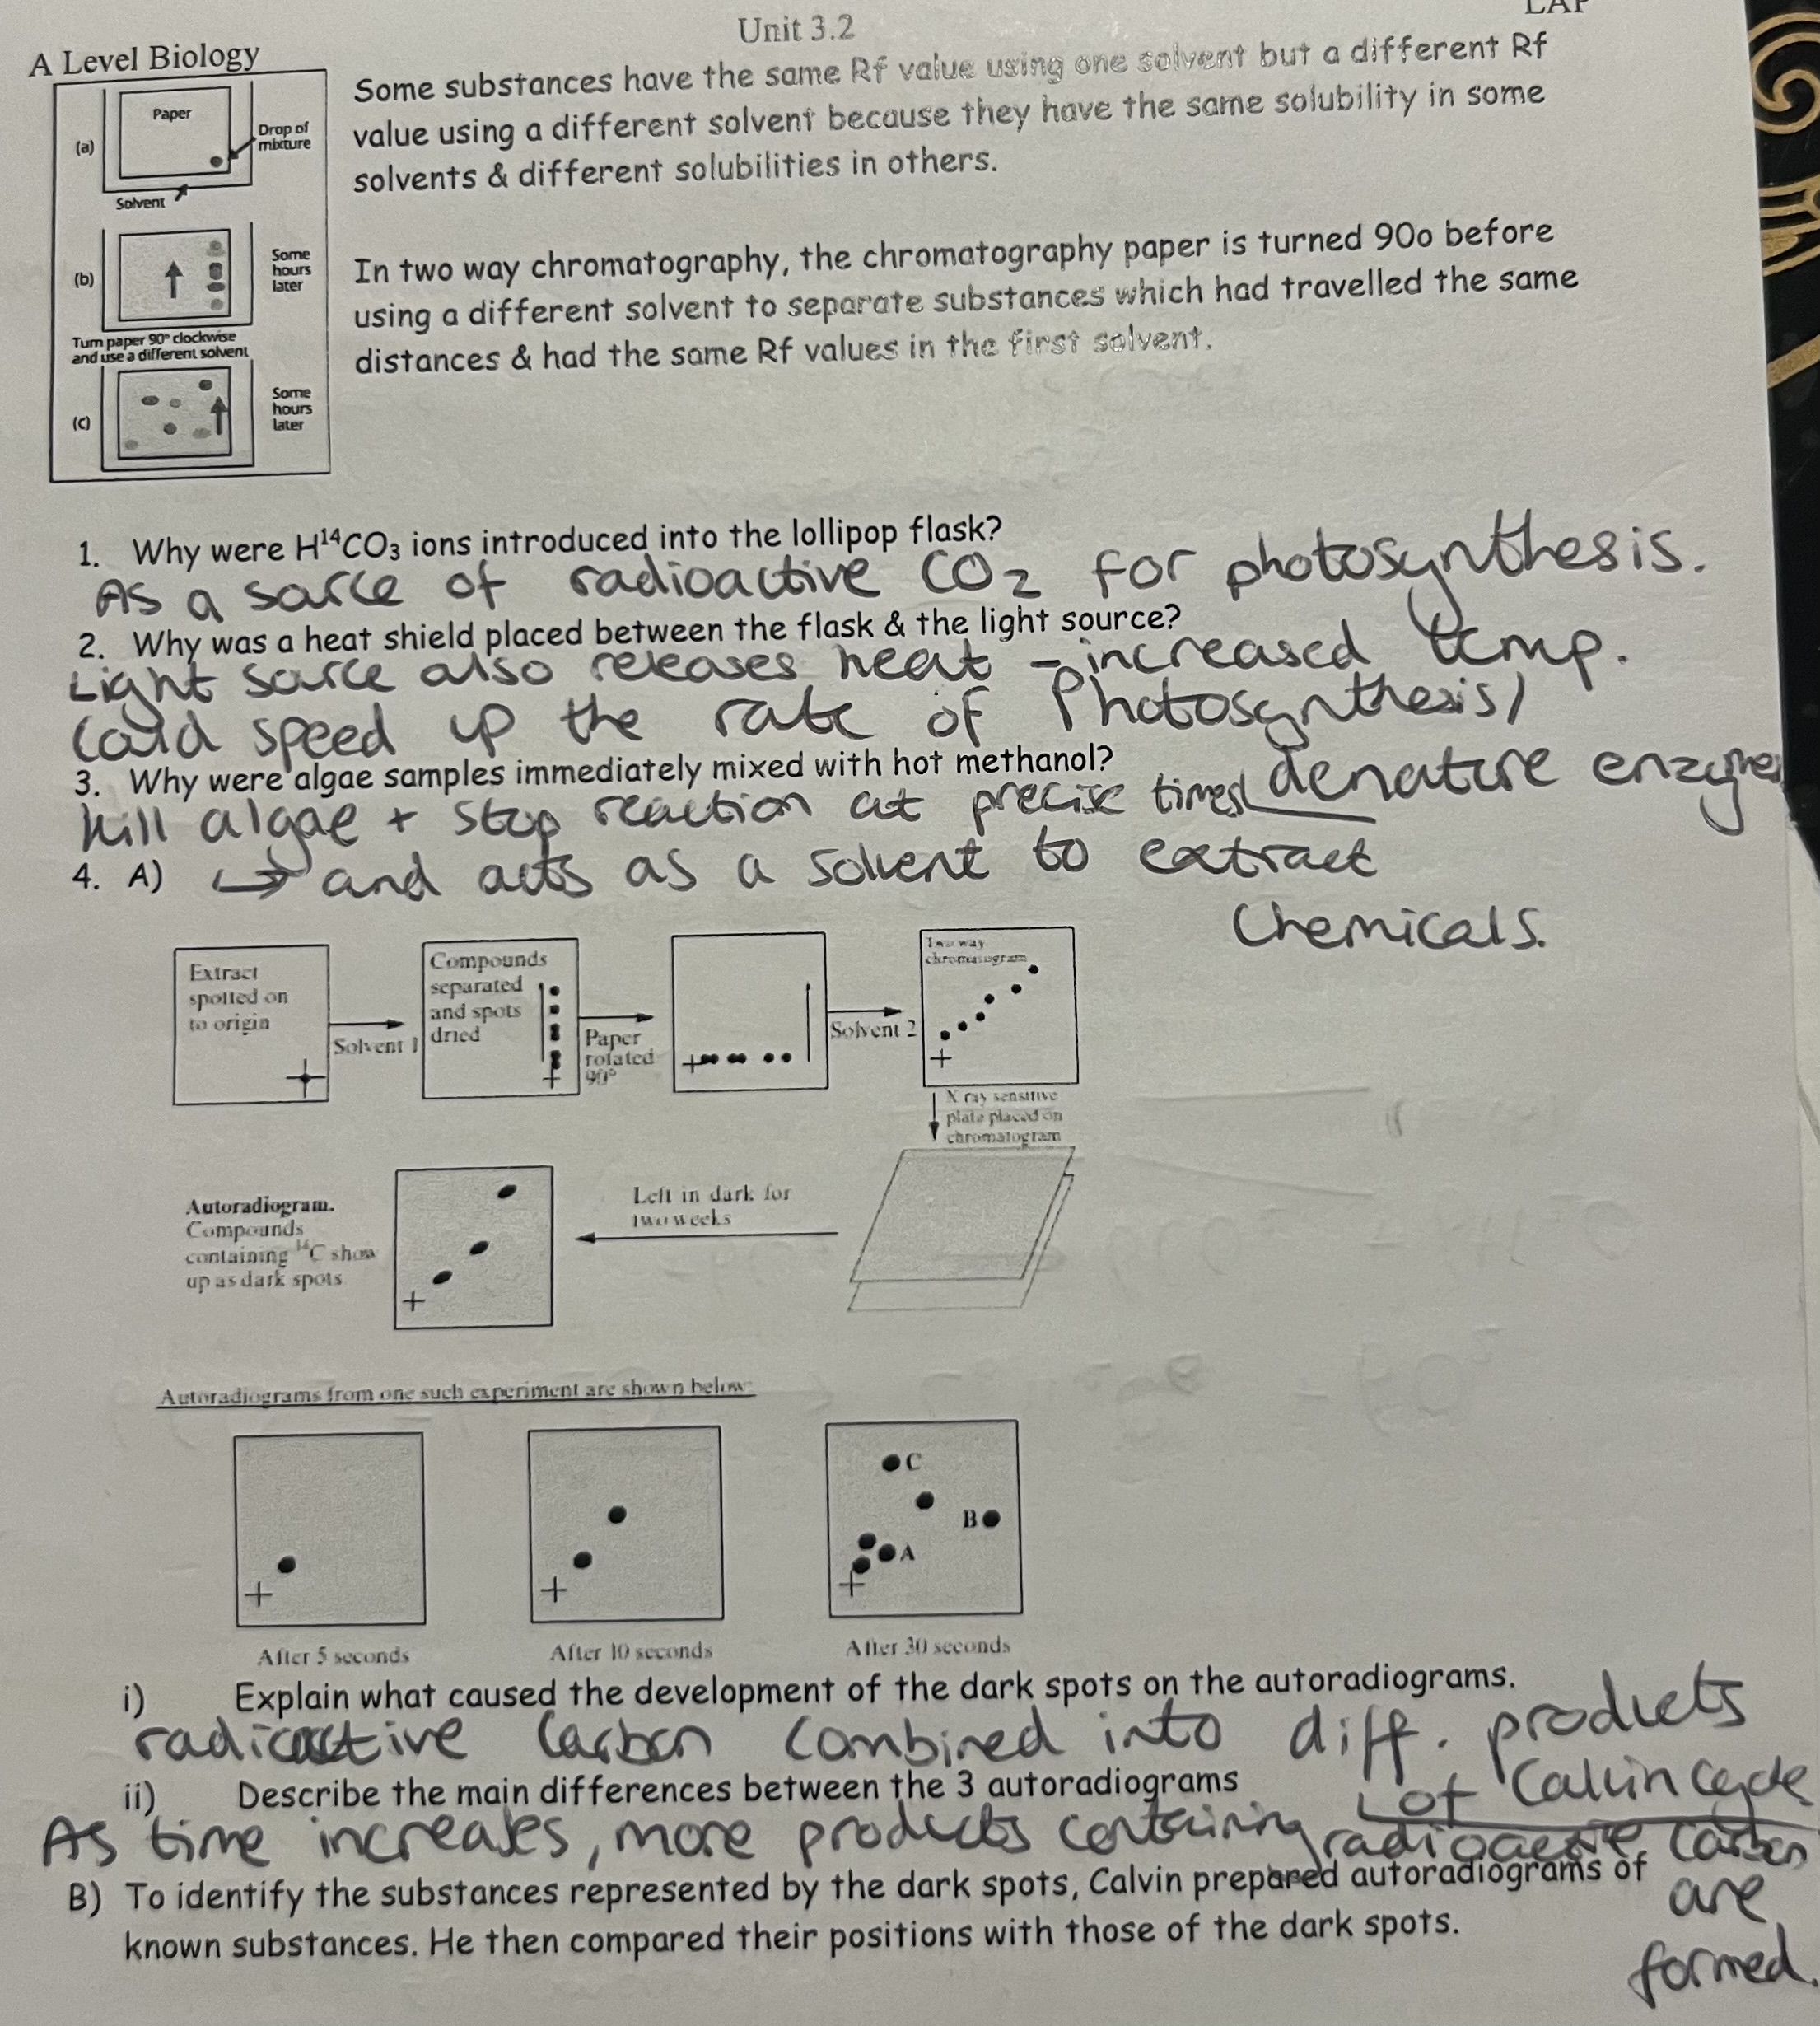 Unit 3.2
LAP
A Level Biology
Paper
(a)
Drop of
mixture
Solvent
(b)
Some
hours
later
Turn paper 90° clockwise
and use a different solvent
(c)
Some
hours
later
Some substances have the same Rf value using one solvent but a different Rf
value using a different solvent because they have the same solubility in some
solvents & different solubilities in others.
In two way chromatography, the chromatography paper is turned 90o before
using a different solvent to separate substances which had travelled the same
distances & had the same Rf values in the first solvent.
1. Why were H¹⁴CO₃ ions introduced into the lollipop flask?
As a sorce of radioactive CO₂ for photosynthesis.
2. Why was a heat shield placed between the flask & the light source?
Light sorce also releases heat - increased temp.
Could speed up the rate of Photosynthesis /
denature enzymes
3. Why were algae samples immediately mixed with hot methanol?
kill algae + stop reaction at precise times
4. A)
→ and acts as a solvent to extract
Chemicals.
Extract
spotted on
to origin
Solvent 1
Compounds
separated
and spots
dried
Paper
rotated
90°
Solvent 2
Two way
chromatogram
X ray sensitive
plate placed on
chromatogram
Left in dark for
two weeks
Autoradiogram.
Compounds
containing ¹⁴C show
up as dark spots
Autoradiograms from one such experiment are shown below:
C
B
A
After 5 seconds
After 10 seconds
After 30 seconds
i) Explain what caused the development of the dark spots on the autoradiograms.
radioactive Carbon combined into diff. products
of Calvin cycle
ii) Describe the main differences between the 3 autoradiograms
As time increases, more products containing radioactive carbon
are
formed.
B) To identify the substances represented by the dark spots, Calvin prepared autoradiograms of
known substances. He then compared their positions with those of the dark spots.